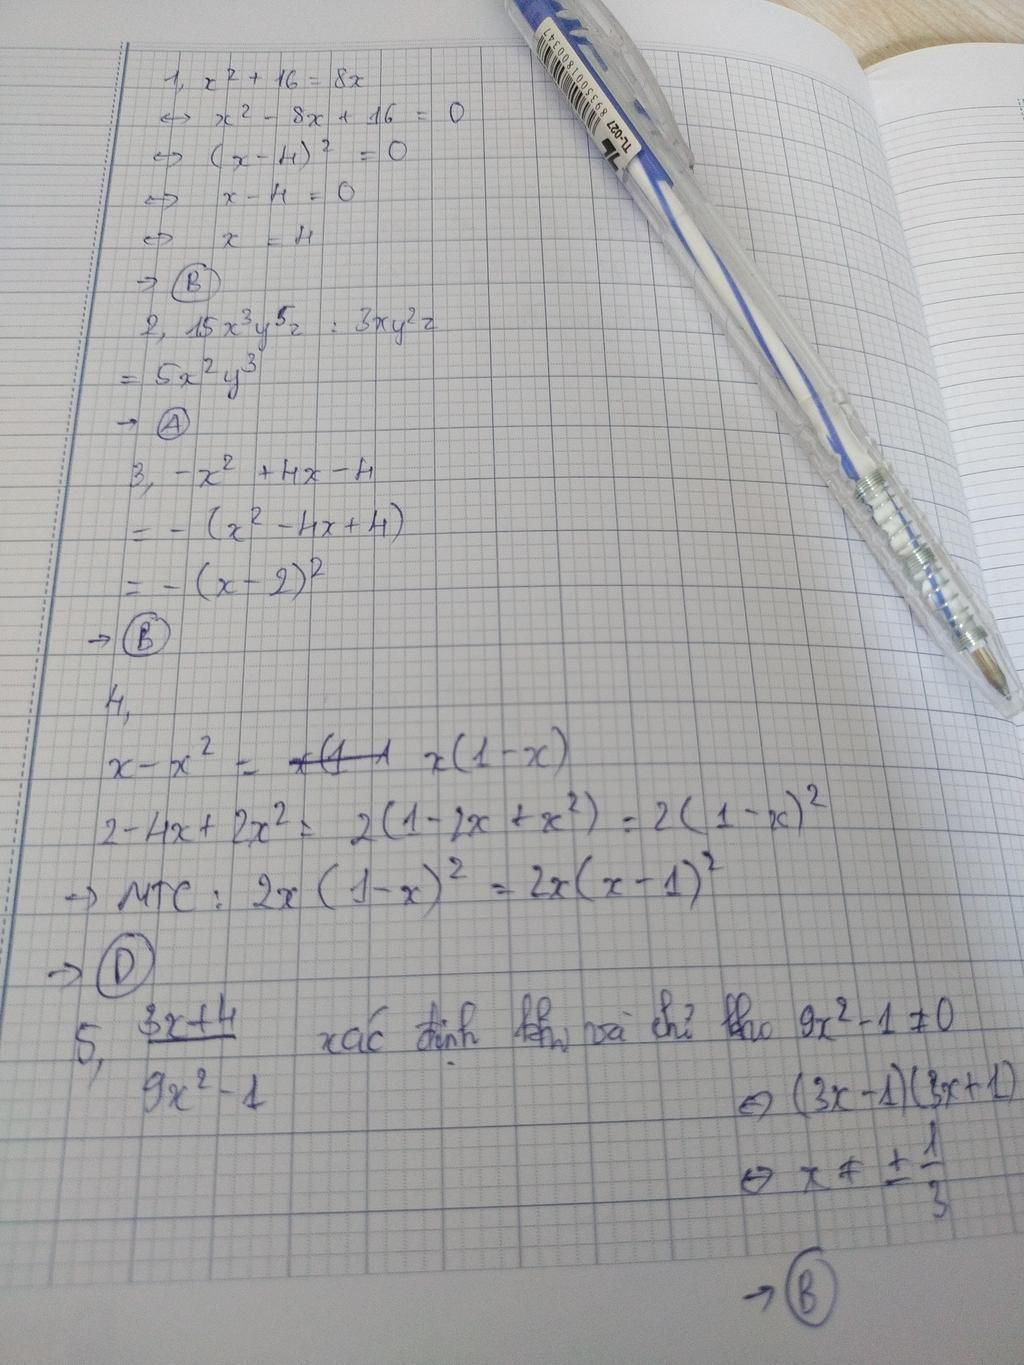 1, x² + 16 = 8x
⇔ x² - 8x + 16 = 0
⇔ (x - 4)² = 0
⇔ x - 4 = 0
⇔ x = 4
→ B
2, 15x³y⁵z : 3xy²z
= 5x²y³
→ A
3, -x² + 4x - 4
= - (x² - 4x + 4)
= - (x - 2)²
→ B
4,
x - x² = x(1 - x)
2 - 4x + 2x² = 2(1 - 2x + x²) = 2(1 - x)²
→ MTC : 2x (1 - x)² = 2x(x - 1)²
→ D
5, (3x+4)/(9x² - 1) xác định khi và chỉ khi 9x² - 1 ≠ 0
⇔ (3x - 1)(3x + 1)
⇔ x ≠ ± 1/3
→ B
TL-027 8935001800347